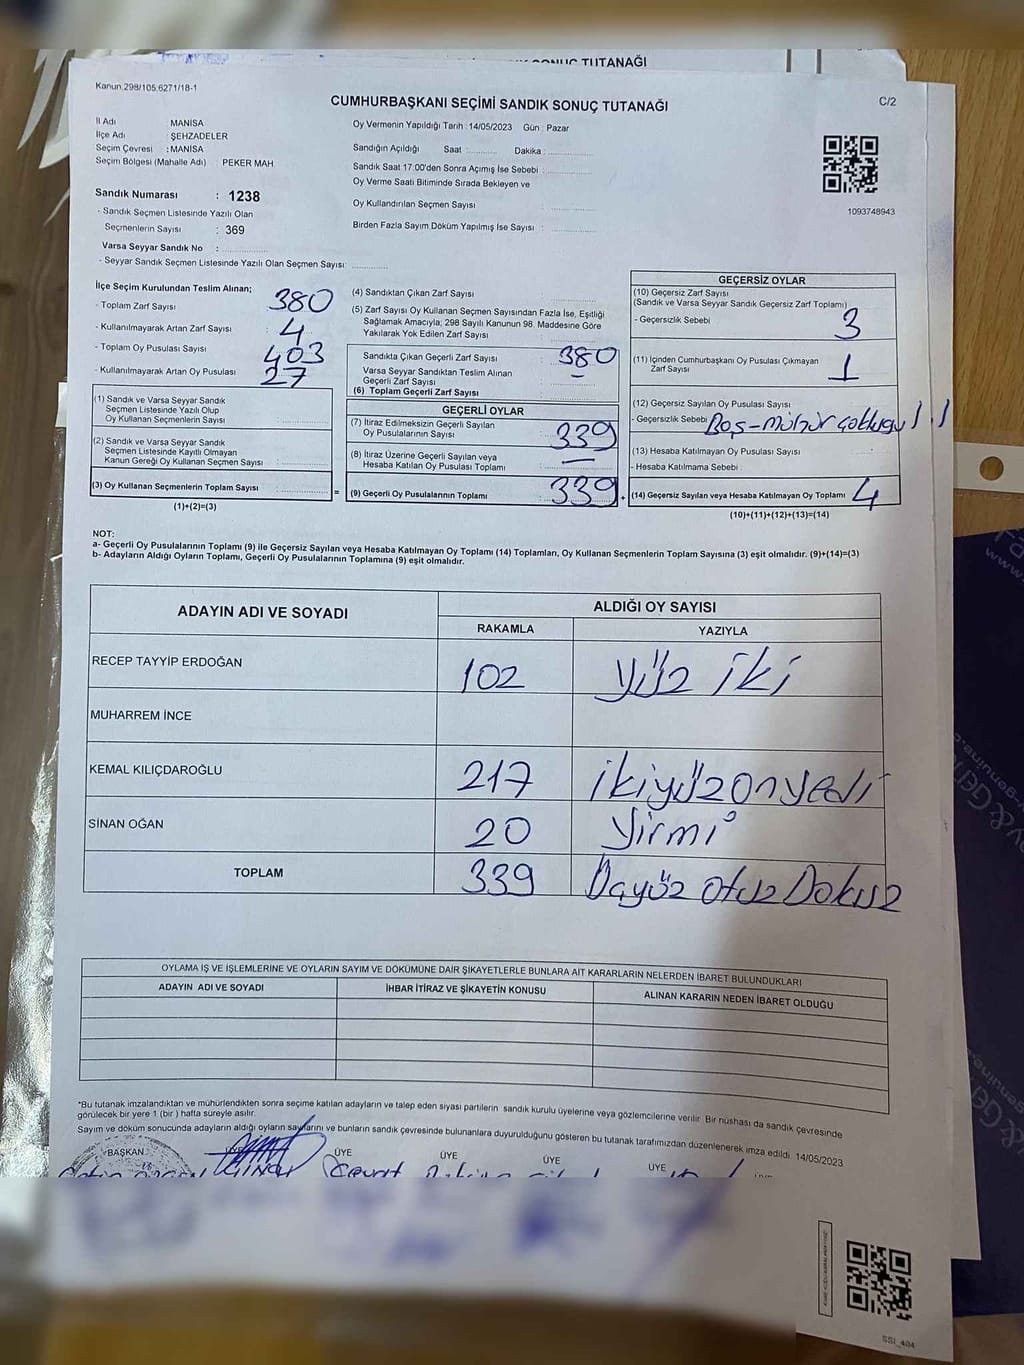 SONUÇ TUTANAĞI
Kanun.298/105.6271/18-1
CUMHURBAŞKANI SEÇİMİ SANDIK SONUÇ TUTANAĞI
C/2
İl Adı : MANİSA
İlçe Adı : ŞEHZADELER
Seçim Çevresi : MANİSA
Seçim Bölgesi (Mahalle Adı) : PEKER MAH.
Oy Vermenin Yapıldığı Tarih : 14/05/2023 Gün : Pazar
Sandığın Açıldığı Saat : Dakika :
Sandık Saat 17:00'den Sonra Açımış İse Sebebi :
Oy Verme Saati Bitiminde Sırada Bekleyen ve
Oy Kullandırılan Seçmen Sayısı :
Birden Fazla Sayım Döküm Yapılmış İse Sayısı :
1093748943
Sandık Numarası : 1238
- Sandık Seçmen Listesinde Yazılı Olan
Seçmenlerin Sayısı : 369
Varsa Seyyar Sandık No :
- Seyyar Sandık Seçmen Listesinde Yazılı Olan Seçmen Sayısı:
İlçe Seçim Kurulundan Teslim Alınan;
- Toplam Zarf Sayısı : 380
- Kullanılmayarak Artan Zarf Sayısı : 4
- Toplam Oy Pusulası Sayısı : 403
- Kullanılmayarak Artan Oy Pusulası : 27
(1) Sandık ve Varsa Seyyar Sandık
Seçmen Listesinde Yazılı Olup
Oy Kullanan Seçmenlerin Sayısı :
(2) Sandık ve Varsa Seyyar Sandık
Seçmen Listesinde Kayıtlı Olmayan
Kanun Gereği Oy Kullanan Seçmen Sayısı :
(3) Oy Kullanan Seçmenlerin Toplam Sayısı :
(1)+(2)=(3)
(4) Sandıktan Çıkan Zarf Sayısı :
(5) Zarf Sayısı Oy Kullanan Seçmen Sayısından Fazla İse, Eşitliği
Sağlamak Amacıyla; 298 Sayılı Kanunun 98. Maddesine Göre
Yakılarak Yok Edilen Zarf Sayısı :
Sandıkta Çıkan Geçerli Zarf Sayısı : 380
Varsa Seyyar Sandıktan Teslim Alınan
Geçerli Zarf Sayısı : -
(6) Toplam Geçerli Zarf Sayısı :
GEÇERLİ OYLAR
(7) İtiraz Edilmeksizin Geçerli Sayılan
Oy Pusulalarının Sayısı : 339
(8) İtiraz Üzerine Geçerli Sayılan veya
Hesaba Katılan Oy Pusulası Toplamı : -
= (9) Geçerli Oy Pusulalarının Toplamı : 339
GEÇERSİZ OYLAR
(10) Geçersiz Zarf Sayısı
(Sandık ve Varsa Seyyar Sandık Geçersiz Zarf Toplamı)
- Geçersizlik Sebebi : 3
(11) İçinden Cumhurbaşkanı Oy Pusulası Çıkmayan
Zarf Sayısı : 1
(12) Geçersiz Sayılan Oy Pusulası Sayısı
- Geçersizlik Sebebi : Boş-mühür çokluğu
(13) Hesaba Katılmayan Oy Pusulası Sayısı :
- Hesaba Katılmama Sebebi :
(14) Geçersiz Sayılan veya Hesaba Katılmayan Oy Toplamı : 4
(10)+(11)+(12)+(13)=(14)
NOT:
a- Geçerli Oy Pusulalarının Toplamı (9) ile Geçersiz Sayılan veya Hesaba Katılmayan Oy Toplamı (14) Toplamları, Oy Kullanan Seçmenlerin Toplam Sayısına (3) eşit olmalıdır. (9)+(14)=(3)
b- Adayların Aldığı Oyların Toplamı, Geçerli Oy Pusulalarının Toplamına (9) eşit olmalıdır.
ADAYIN ADI VE SOYADI
ALDIĞI OY SAYISI
RAKAMLA YAZIYLA
RECEP TAYYİP ERDOĞAN 102 Yüz iki
MUHARREM İNCE
KEMAL KILIÇDAROĞLU 217 ikiyüzonyedi
SİNAN OĞAN 20 Yirmi
TOPLAM 339 Üçyüz otuz Dokuz
OYLAMA İŞ VE İŞLEMLERİNE VE OYLARIN SAYIM VE DÖKÜMÜNE DAİR ŞİKAYETLERLE BUNLARA AİT KARARLARIN NELERDEN İBARET BULUNDUKLARI
ADAYIN ADI VE SOYADI İHBAR İTİRAZ VE ŞİKAYETİN KONUSU ALINAN KARARIN NEDEN İBARET OLDUĞU
*Bu tutanak imzalandıktan ve mühürlendikten sonra seçime katılan adayların ve talep eden siyasi partilerin sandık kurulu üyelerine veya gözlemcilerine verilir. Bir nüshası da sandık çevresinde
görülecek bir yere 1 (bir ) hafta süreyle asılır.
Sayım ve döküm sonucunda adayların aldığı oyların sayılarını ve bunların sandık çevresinde bulunanlara duyurulduğunu gösteren bu tutanak tarafımızdan düzenlenerek imza edildi. 14/05/2023
BAŞKAN ÜYE ÜYE ÜYE ÜYE ÜYE
SSI_404